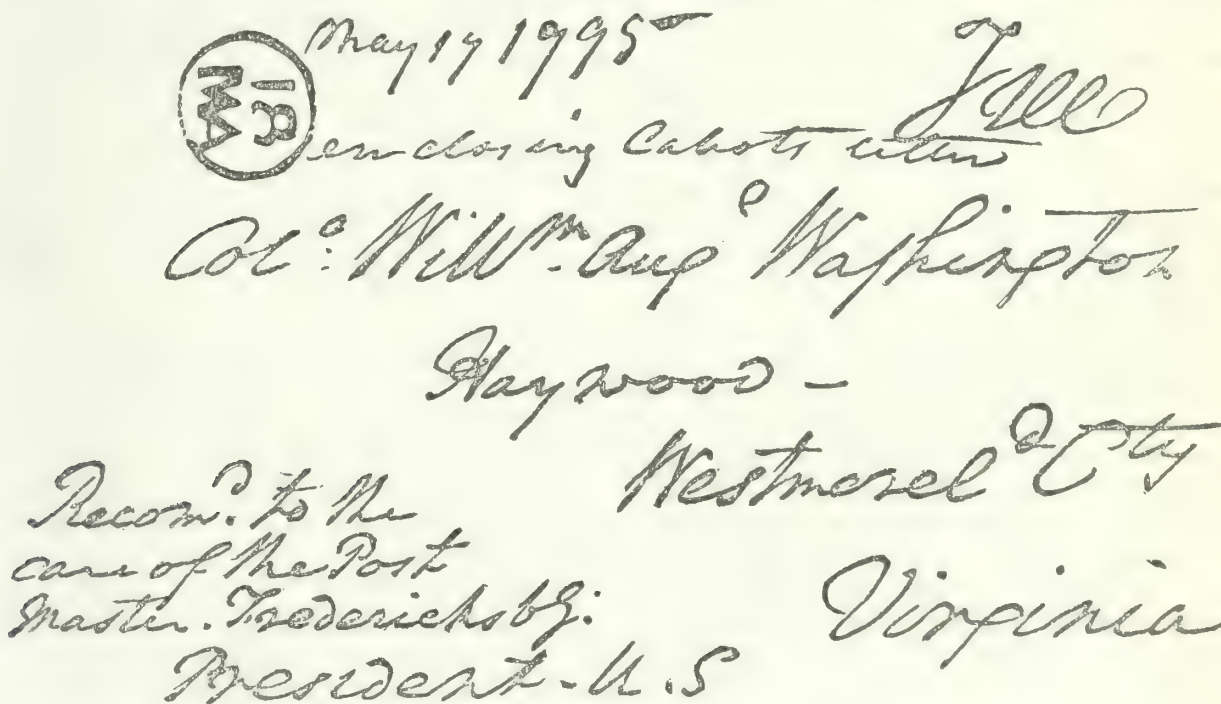 May 17 1795
Free
enclosing Cabots letter
Colo: Willm. Augo Washington
Haywood -
Westmoreld Cty
Virginia
Recomd. to the
care of the Post
Master. Fredericksbg.
President. U.S